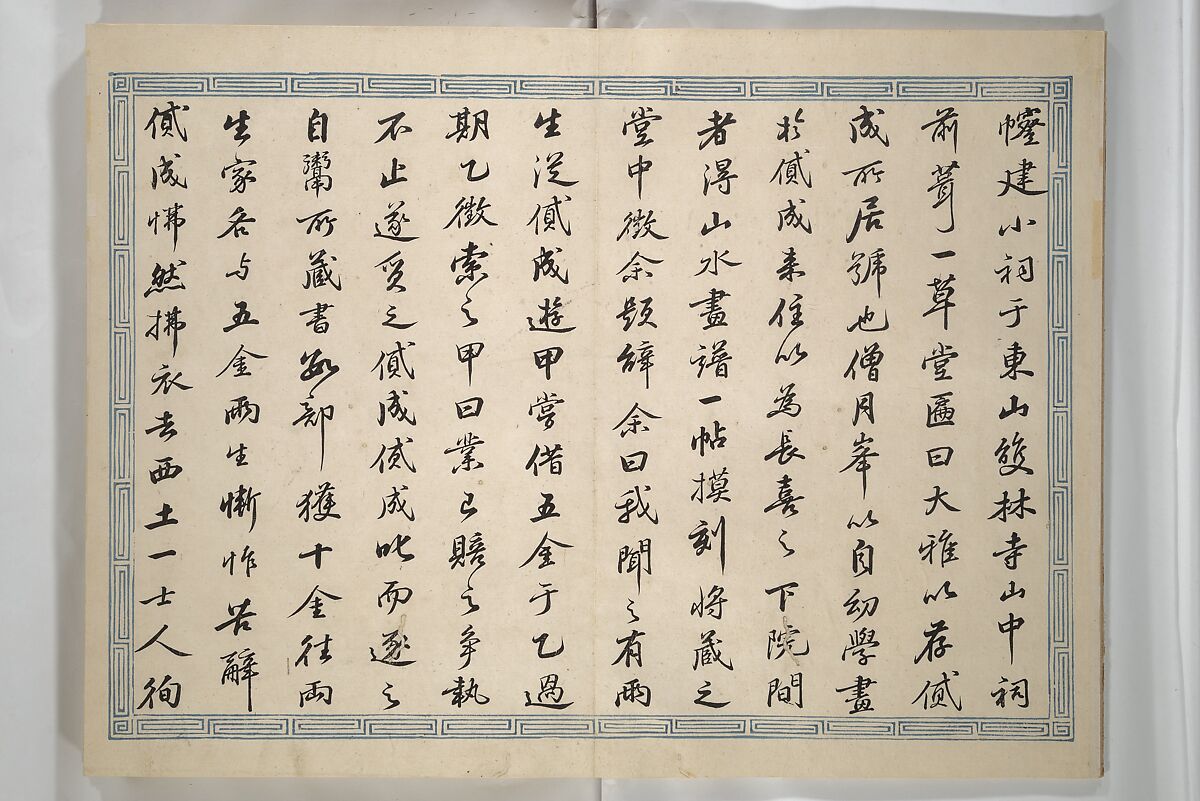 幢建小祠于東山雙林寺山中祠
前葺一草堂匾曰大雅以存貸
成所居號也僧月峯以自幼學畫
於貸成来住以為長喜之下院間
者得山水畫譜一帖摸刻将蔵之
堂中徴余題辞余曰我聞之有兩
生従貸成遊甲嘗借五金于乙過
期乙徴索之甲曰業已賠之争執
不止遂質之貸成貸成叱而逐之
自鬻所蔵書数部獲十金往両
生家各与五金兩生慚怍苦辭
貸成怫然拂衣去西土一士人徇